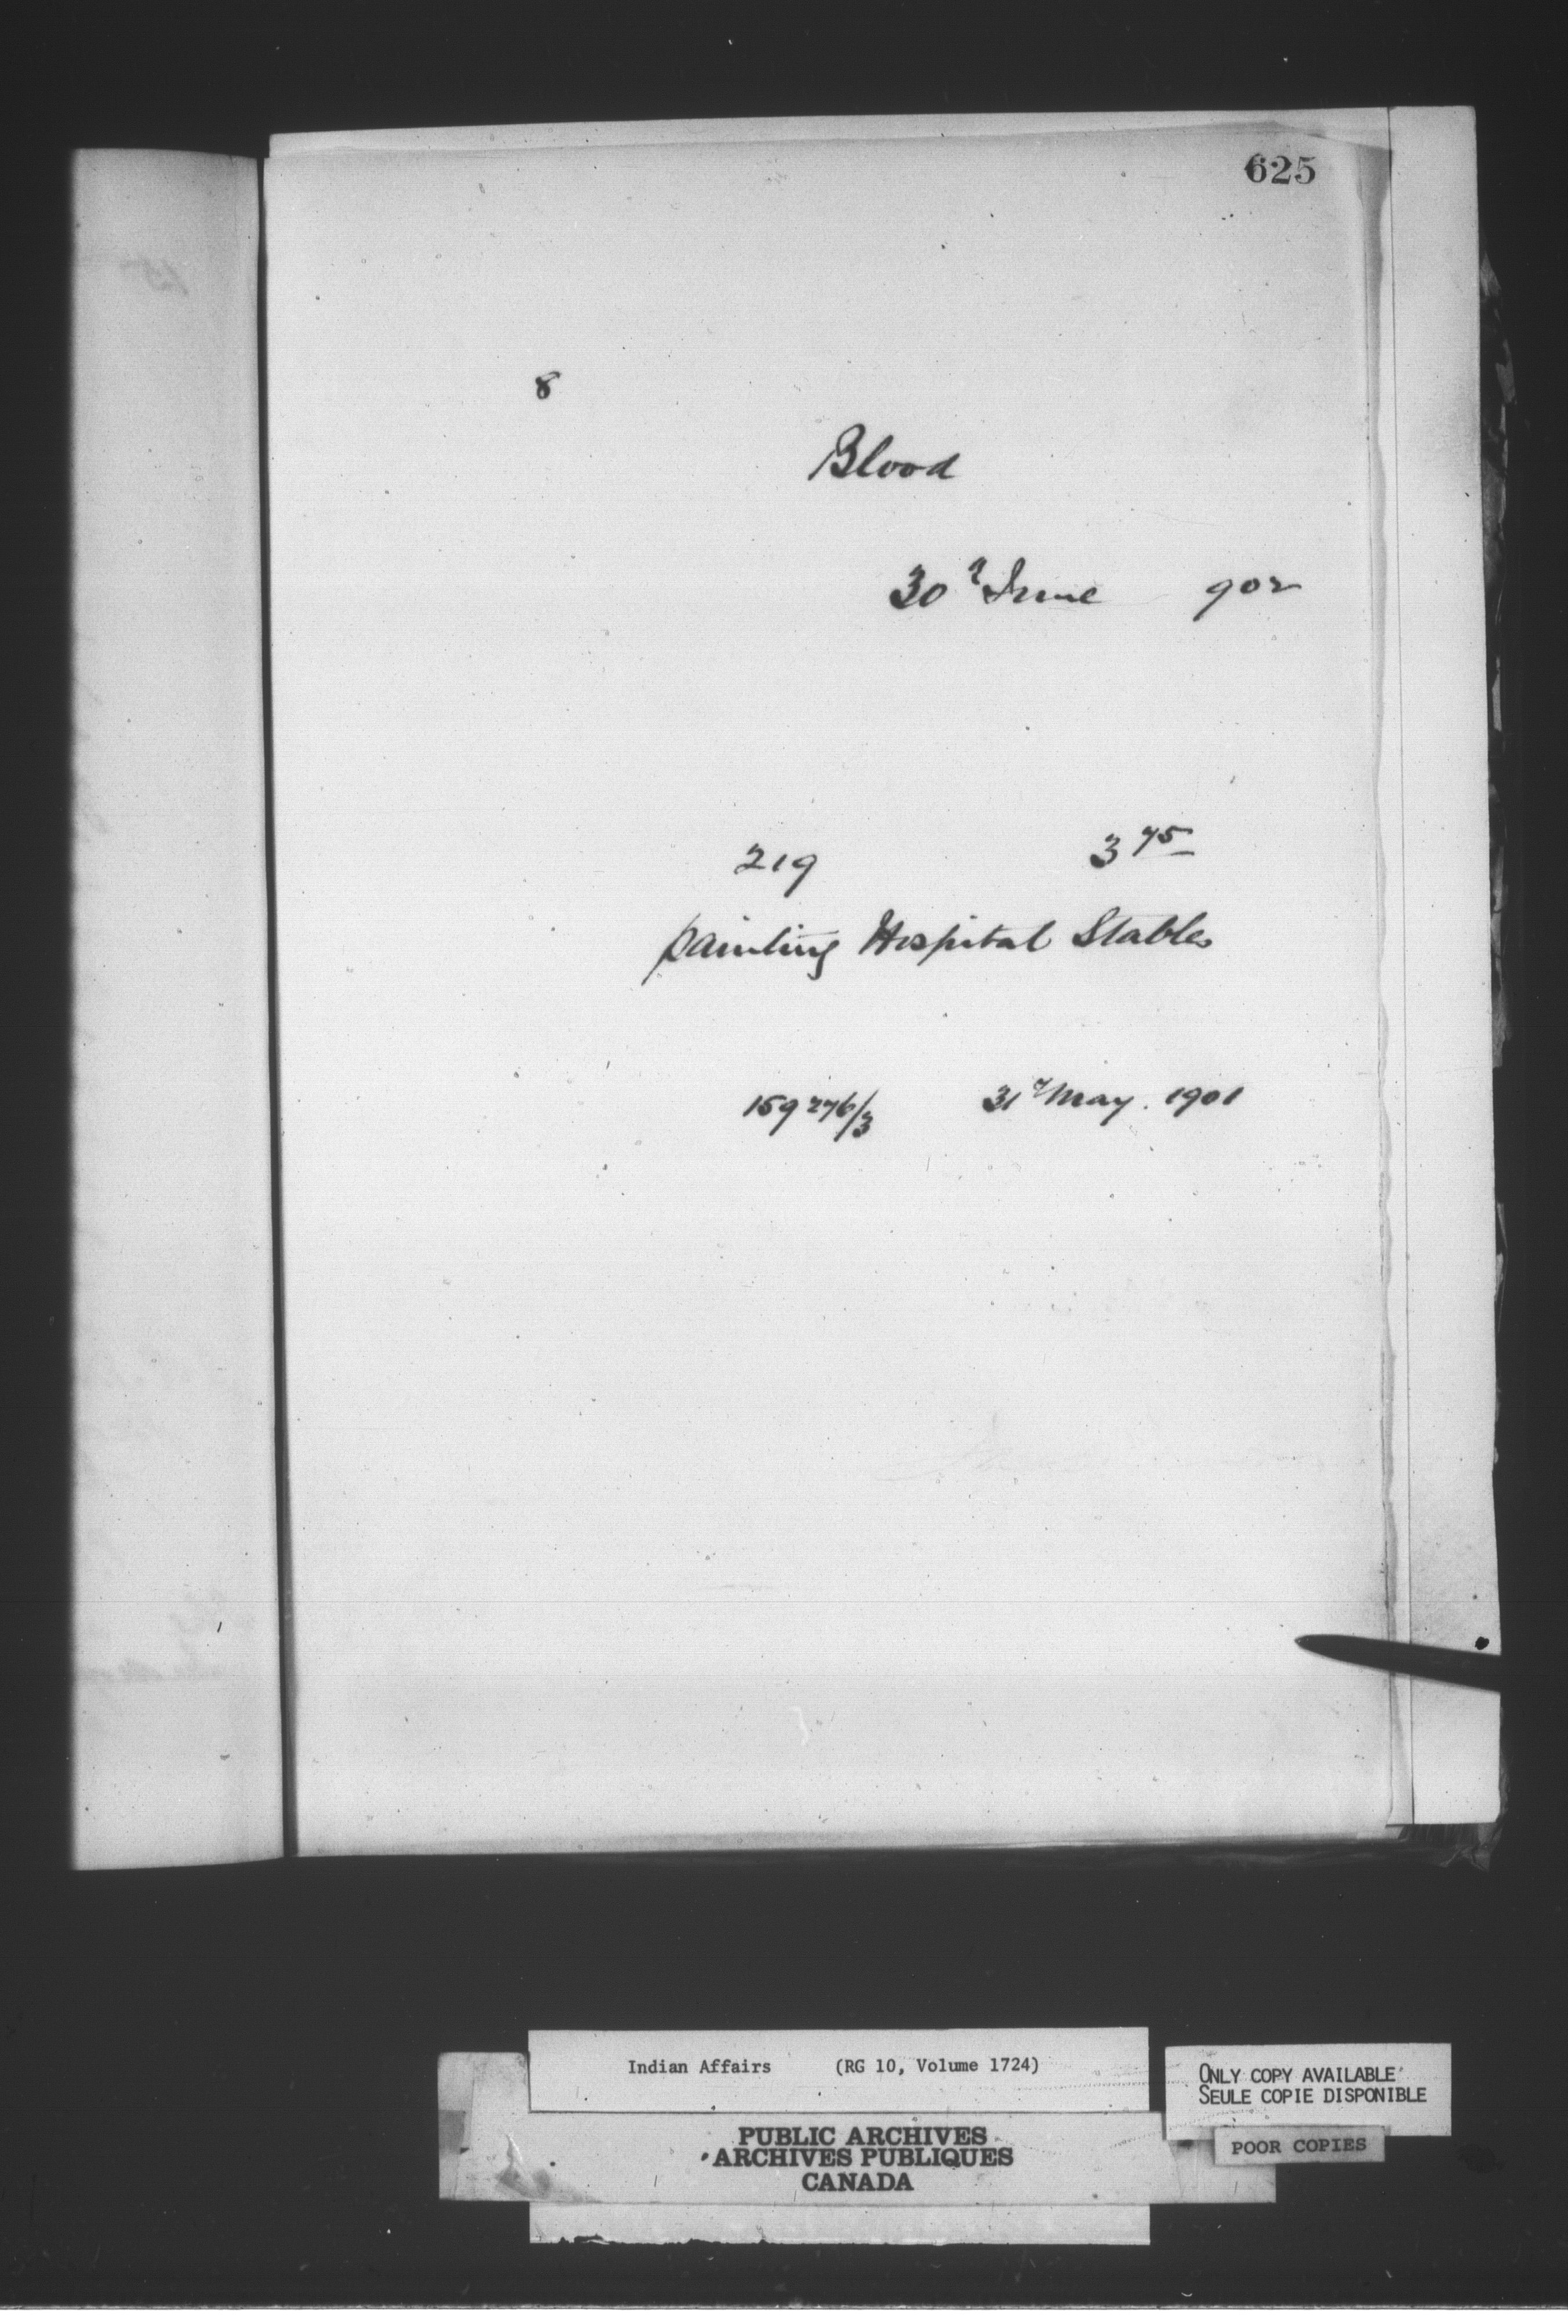 625
8
Blood
30th June 902
219 3 75
painting Hospital Stables
159276/3 31st May. 1901
Indian Affairs (RG 10, Volume 1724)
ONLY COPY AVAILABLE
SEULE COPIE DISPONIBLE
PUBLIC ARCHIVES
ARCHIVES PUBLIQUES
CANADA
POOR COPIES